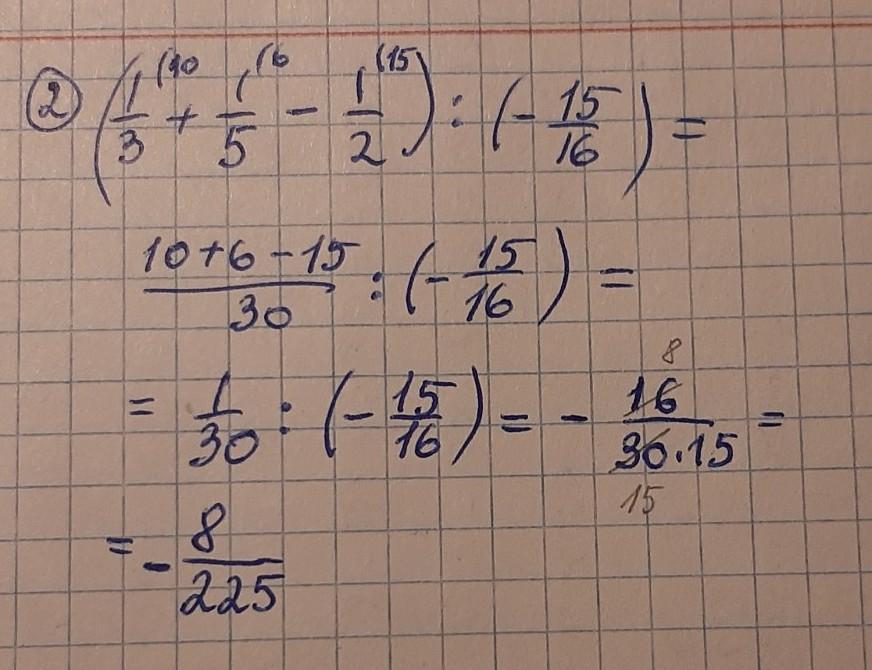 ② (1/3^(10 + 1/5^(6 - 1/2^(15) : (- 15/16) =
(10+6-15)/30 : (- 15/16) =
8
= 1/30 : (- 15/16) = - 16/(30·15) =
15
= - 8/225